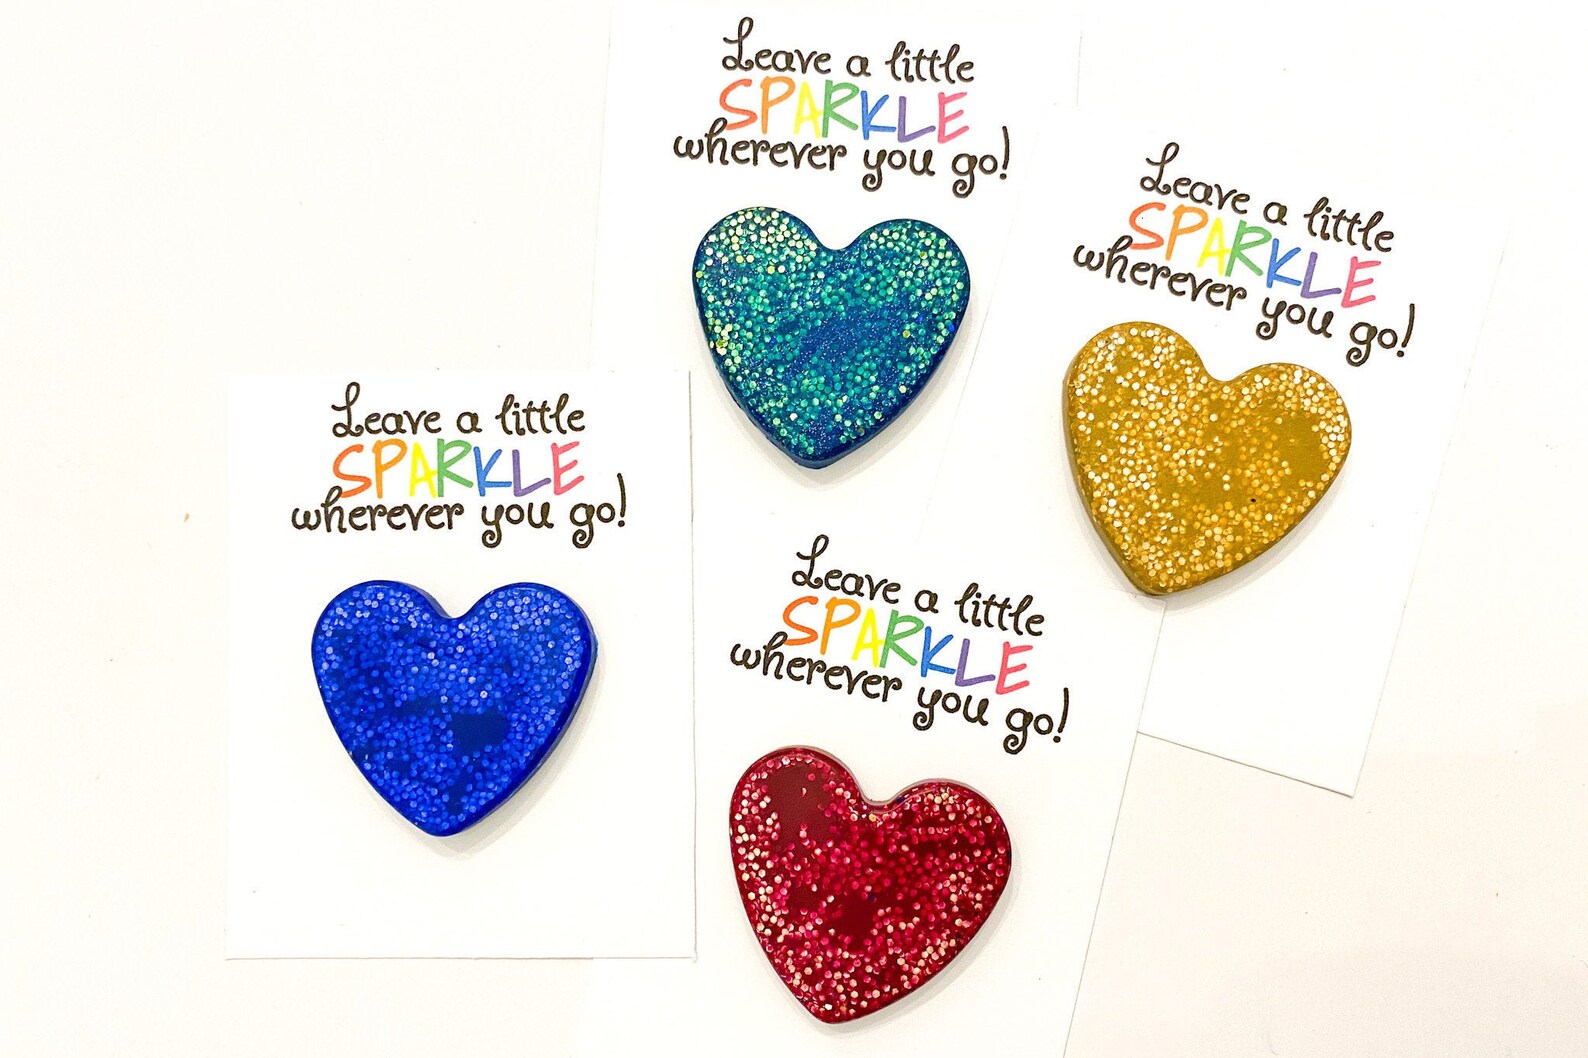 Leave a little
SPARKLE
wherever you go!
Leave a little
SPARKLE
wherever you go!
Leave a little
SPARKLE
wherever you go!
Leave a little
SPARKLE
wherever you go!